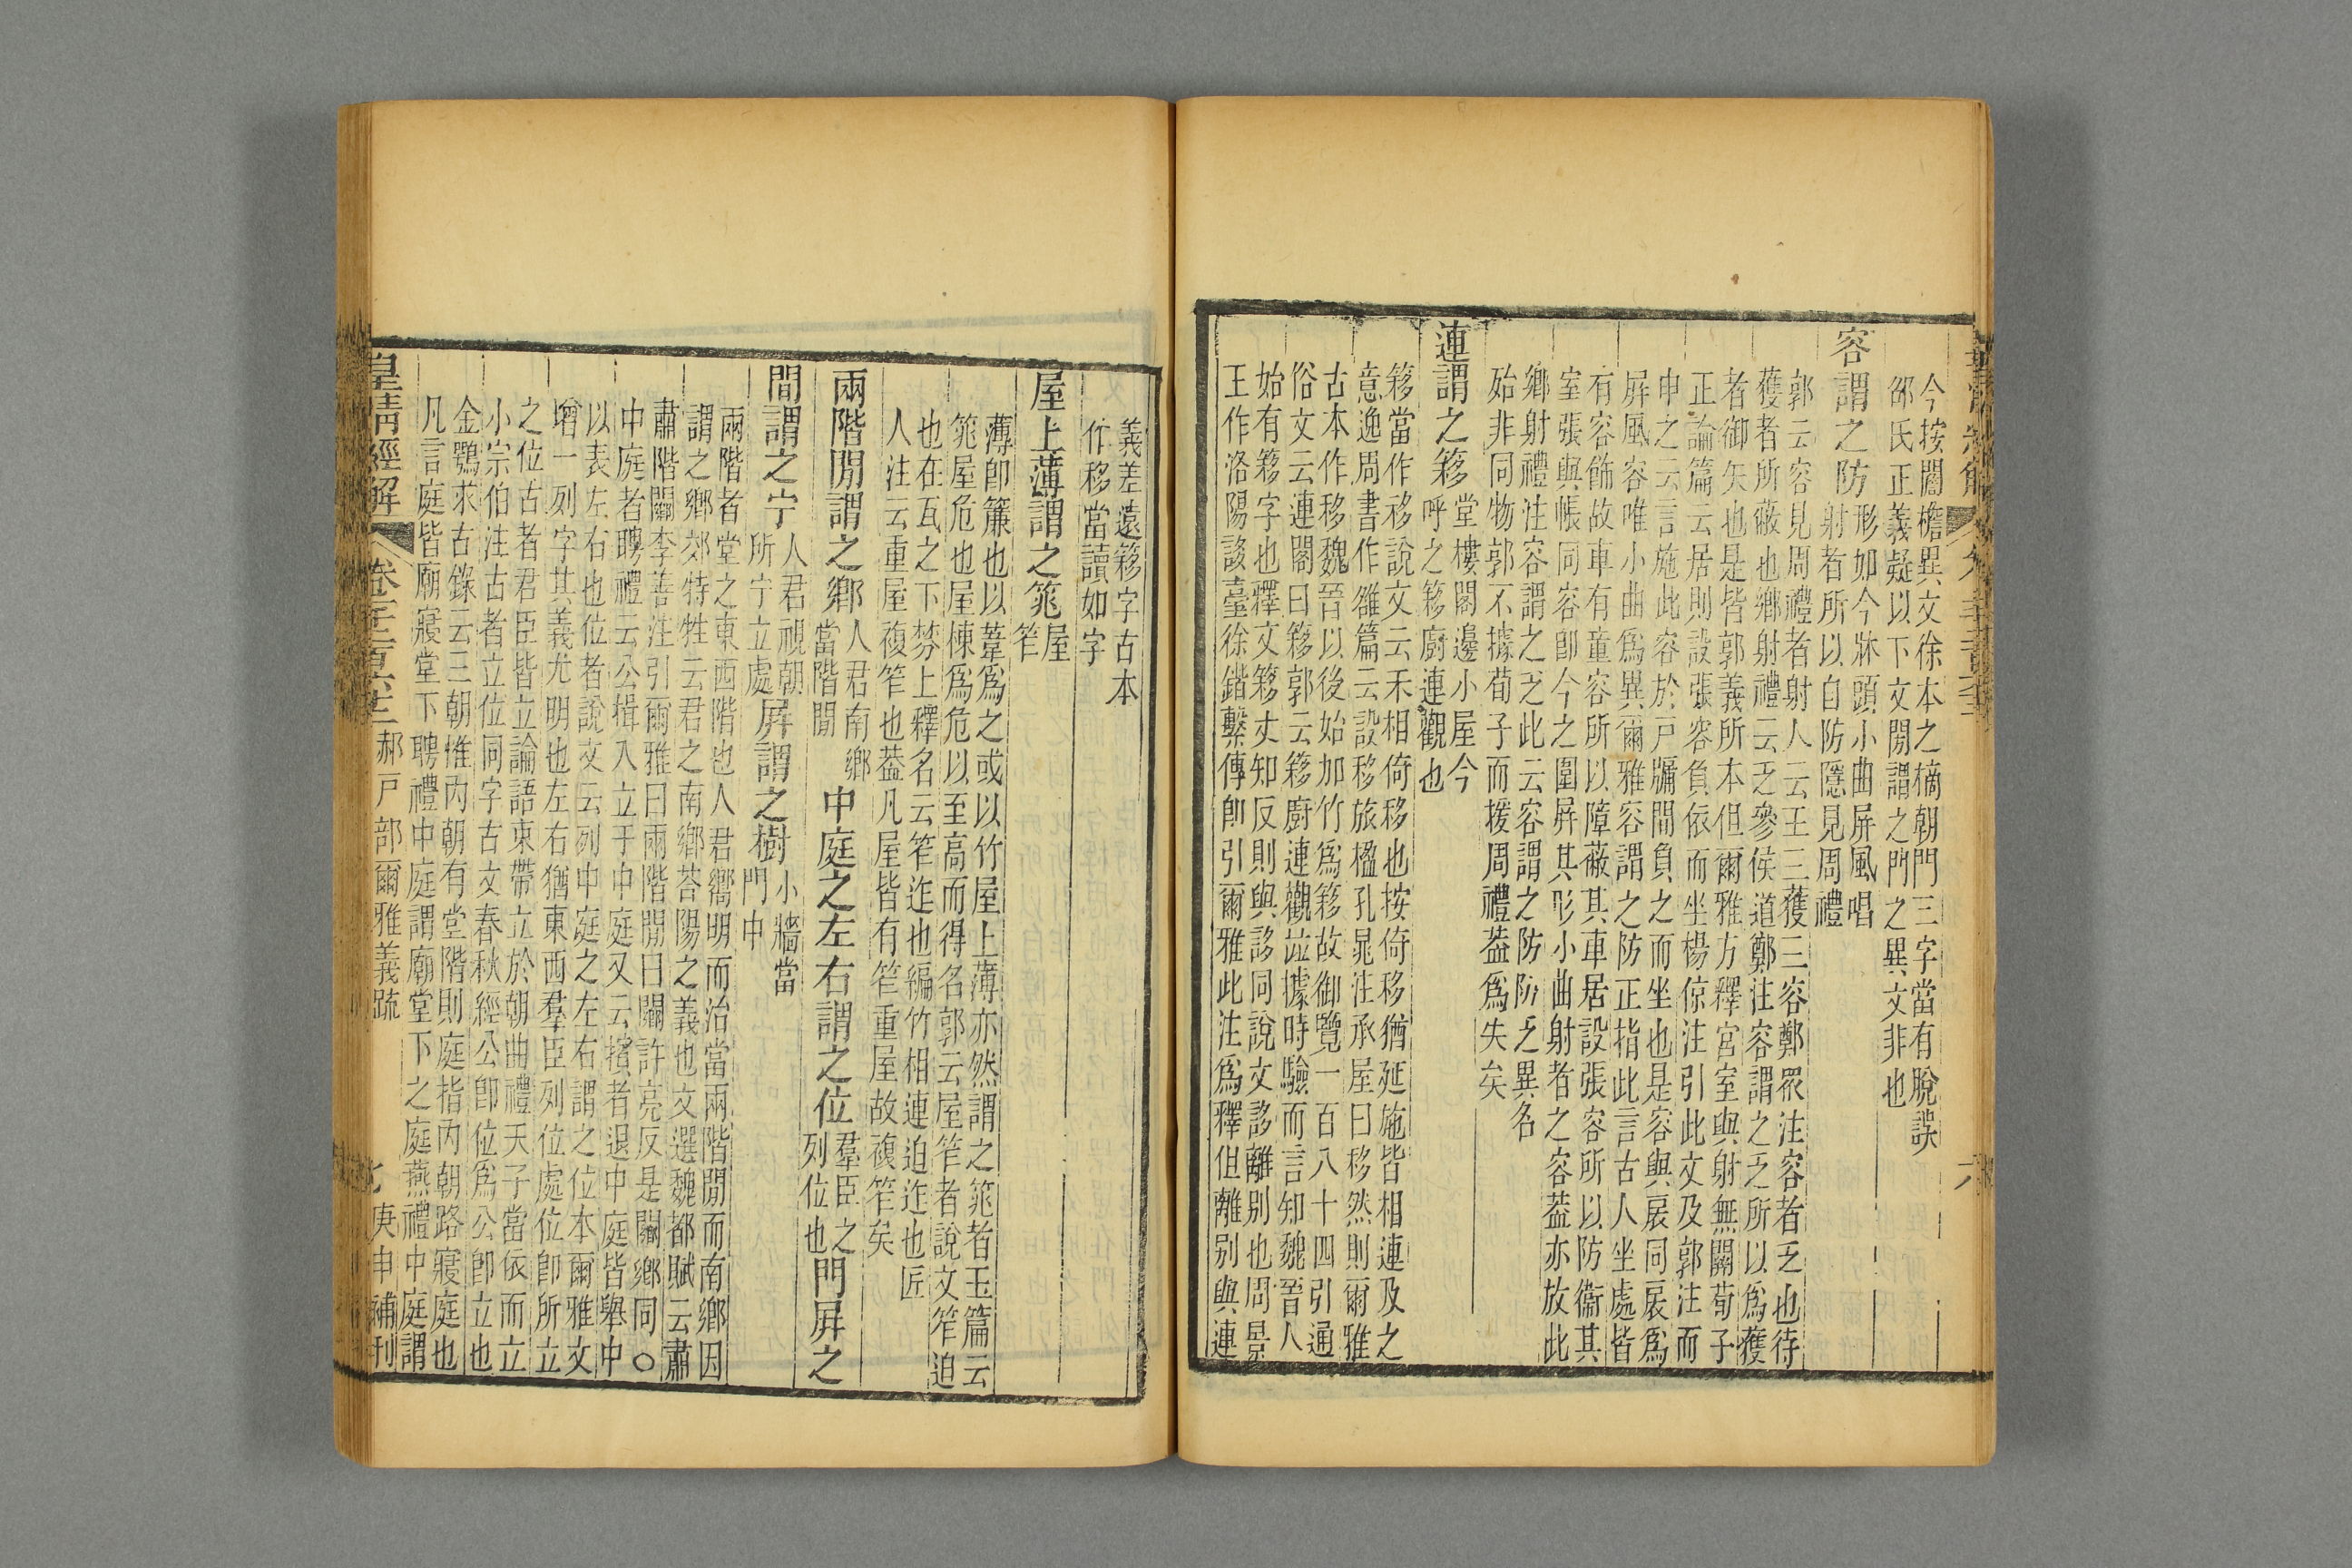 今按閣檐異文徐本之樀朝門三字當有脫誤
邵氏正義疑以下文閍謂之門之異文非也
容謂之防形如今牀頭小曲屏風唱
射者所以自防隱見周禮
郭云容見周禮者射人云王三獲三容鄭眾注容者乏也待
獲者所蔽也鄉射禮云乏參侯道鄭注容謂之乏所以為獲
者御矢也是皆郭義所本但爾雅方釋宮室與射無關荀子
正論篇云居則設張容負依而坐楊倞注引此文及郭注而
申之云言施此容於戸牖間負之而坐也是容與扆同扆為
屏風容唯小曲為異爾雅容謂之防正指此言古人坐處皆
有容飾故車有童容所以障蔽其車居設張容所以防衞其
室張與帳同容卽今之圍屏其形小曲射者之容葢亦放此
鄉射禮注容謂之乏此云容謂之防防乏異名
殆非同物郭不據荀子而援周禮葢為失矣
連謂之簃堂樓閣邊小屋今
呼之簃廚連觀也
簃當作移說文云禾相倚移也按倚移猶延施皆相連及之
意逸周書作雒篇云設移旅楹孔晁注承屋曰移然則爾雅
古本作移魏晉以後始加竹為簃故御覽一百八十四引通
俗文云連閣曰簃郭云簃廚連觀竝據時驗而言知魏晉人
始有簃字也釋文簃丈知反則與誃同說文誃離別也周景
王作洛陽誃臺徐鍇繫傳卽引爾雅此注為釋但離别與連
義差遠簃字古本
作移當讀如字
屋上薄謂之筄屋
笮
薄卽簾也以葦為之或以竹屋上薄亦然謂之筄者玉篇云
筄屋危也屋棟為危以至高而得名郭云屋笮者說文笮迫
也在瓦之下棼上釋名云笮迮也編竹相連迫迮也匠
人注云重屋複笮也葢凡屋皆有笮重屋故複笮矣
兩階閒謂之鄉人君南鄉
當階閒
中庭之左右謂之位羣臣之
列位也
門屏之
間謂之宁人君視朝
所宁立處
屏謂之樹小牆當
門中
兩階者堂之東西階也人君嚮明而治當兩階閒而南鄉因
謂之鄉郊特牲云君之南鄉荅陽之義也文選魏都賦云肅
肅階𨶹李善注引爾雅曰兩階閒曰𨶹許亮反是𨶹鄉同〇
中庭者聘禮云公揖入立于中庭又云擯者退中庭皆舉中
以表左右也位者說文云列中庭之左右謂之位本爾雅文
增一列字其義尤明也左右猶東西羣臣列位處位卽所立
之位古者君臣皆立論語束帶立於朝曲禮天子當依而立
小宗伯注古者立位同字古文春秋經公卽位為公卽立也
金鶚求古錄云三朝惟內朝有堂階則庭指内朝路寢庭也
凡言庭皆廟寢堂下聘禮中庭謂廟堂下之庭燕禮中庭謂
皇清經解 郝戸部爾雅義疏 七 庚申補刊